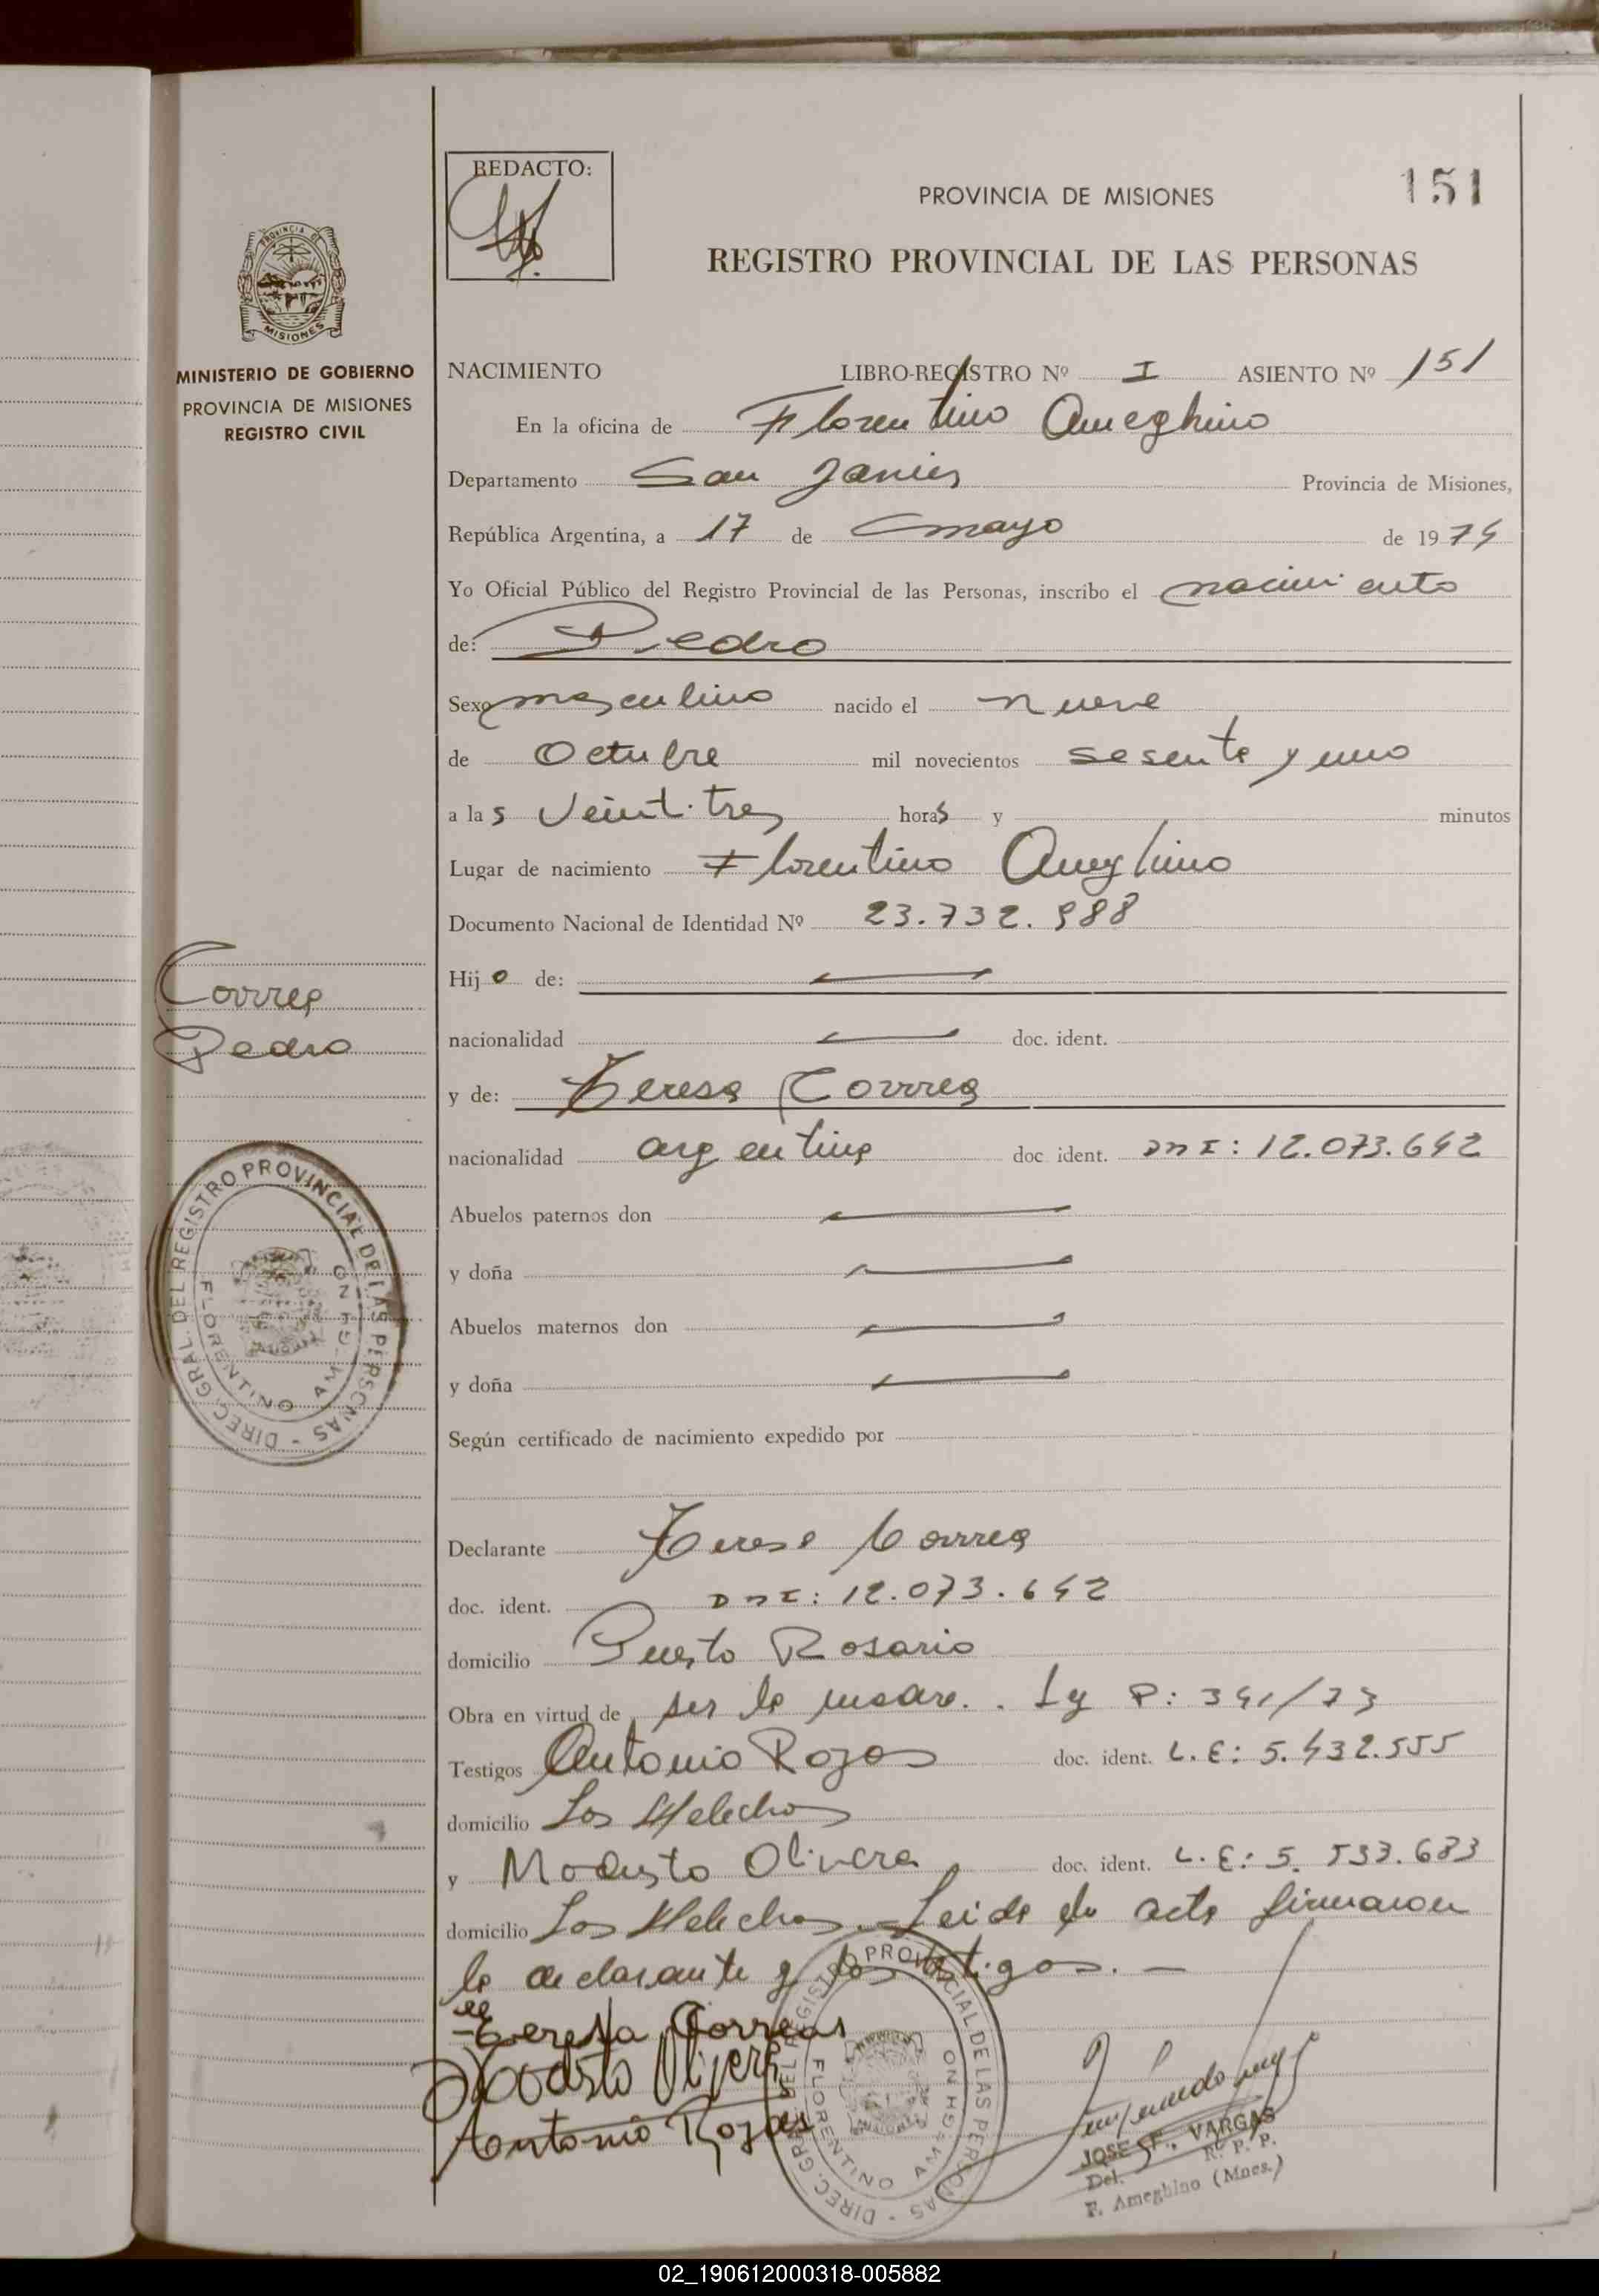 REDACTO:
PROVINCIA DE MISIONES
151
REGISTRO PROVINCIAL DE LAS PERSONAS
MISIONES
MINISTERIO DE GOBIERNO
PROVINCIA DE MISIONES
REGISTRO CIVIL
NACIMIENTO LIBRO-REGISTRO Nº I ASIENTO Nº 151
En la oficina de Florentino Ameghino
Departamento San Javier Provincia de Misiones,
República Argentina, a 17 de mayo de 1974
Yo Oficial Público del Registro Provincial de las Personas, inscribo el nacimiento
de: Pedro
Sexo masculino nacido el nueve
de Octubre mil novecientos sesenta y uno
a las veintitres horas y minutos
Lugar de nacimiento Florentino Ameghino
Documento Nacional de Identidad Nº 23.732.988
Hijo de:
Correa
Pedro
nacionalidad doc. ident.
y de: Teresa Correa
nacionalidad argentina doc. ident. DNI: 12.073.642
Abuelos paternos don
y doña
Abuelos maternos don
y doña
DIREC. GRAL. DEL REGISTRO PROVINCIAL DE LAS PERSONAS -
FLORENTINO AMEGHINO
Según certificado de nacimiento expedido por
Declarante Teresa Correa
doc. ident. DNI: 12.073.642
domicilio Puerto Rosario
Obra en virtud de ser la madre. Ley P: 341/73
Testigos Antonio Rojas doc. ident. L.E: 5.432.555
domicilio Los Helechos
y Modesto Olivera doc. ident. L.E: 5.533.683
domicilio Los Helechos. Leida el acta firmaron
la declarante y los testigos. —
Teresa Correas
Modesto Olivera
Antonio Rojas
DIREC. GRAL. DEL REGISTRO PROVINCIAL DE LAS PERSONAS -
FLORENTINO AMEGHINO
JOSE F. VARGAS
Del. R. P. P.
F. Ameghino (Mnes.)
02_190612000318-005882